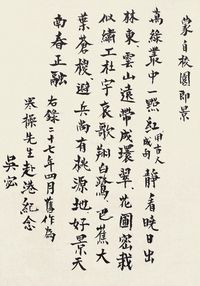 蒙自校園即景
萬綠叢中一點紅用古人成句靜看曉日出
林東雲山遠帶成環翠花圃密栽
似繡工杜宇哀歌翔白鷺芭蕉大
葉蒼櫻避兵尚有桃源地好景天
南春正融
右錄二十七年四月舊作為
寒操先生赴港紀念
吳宓